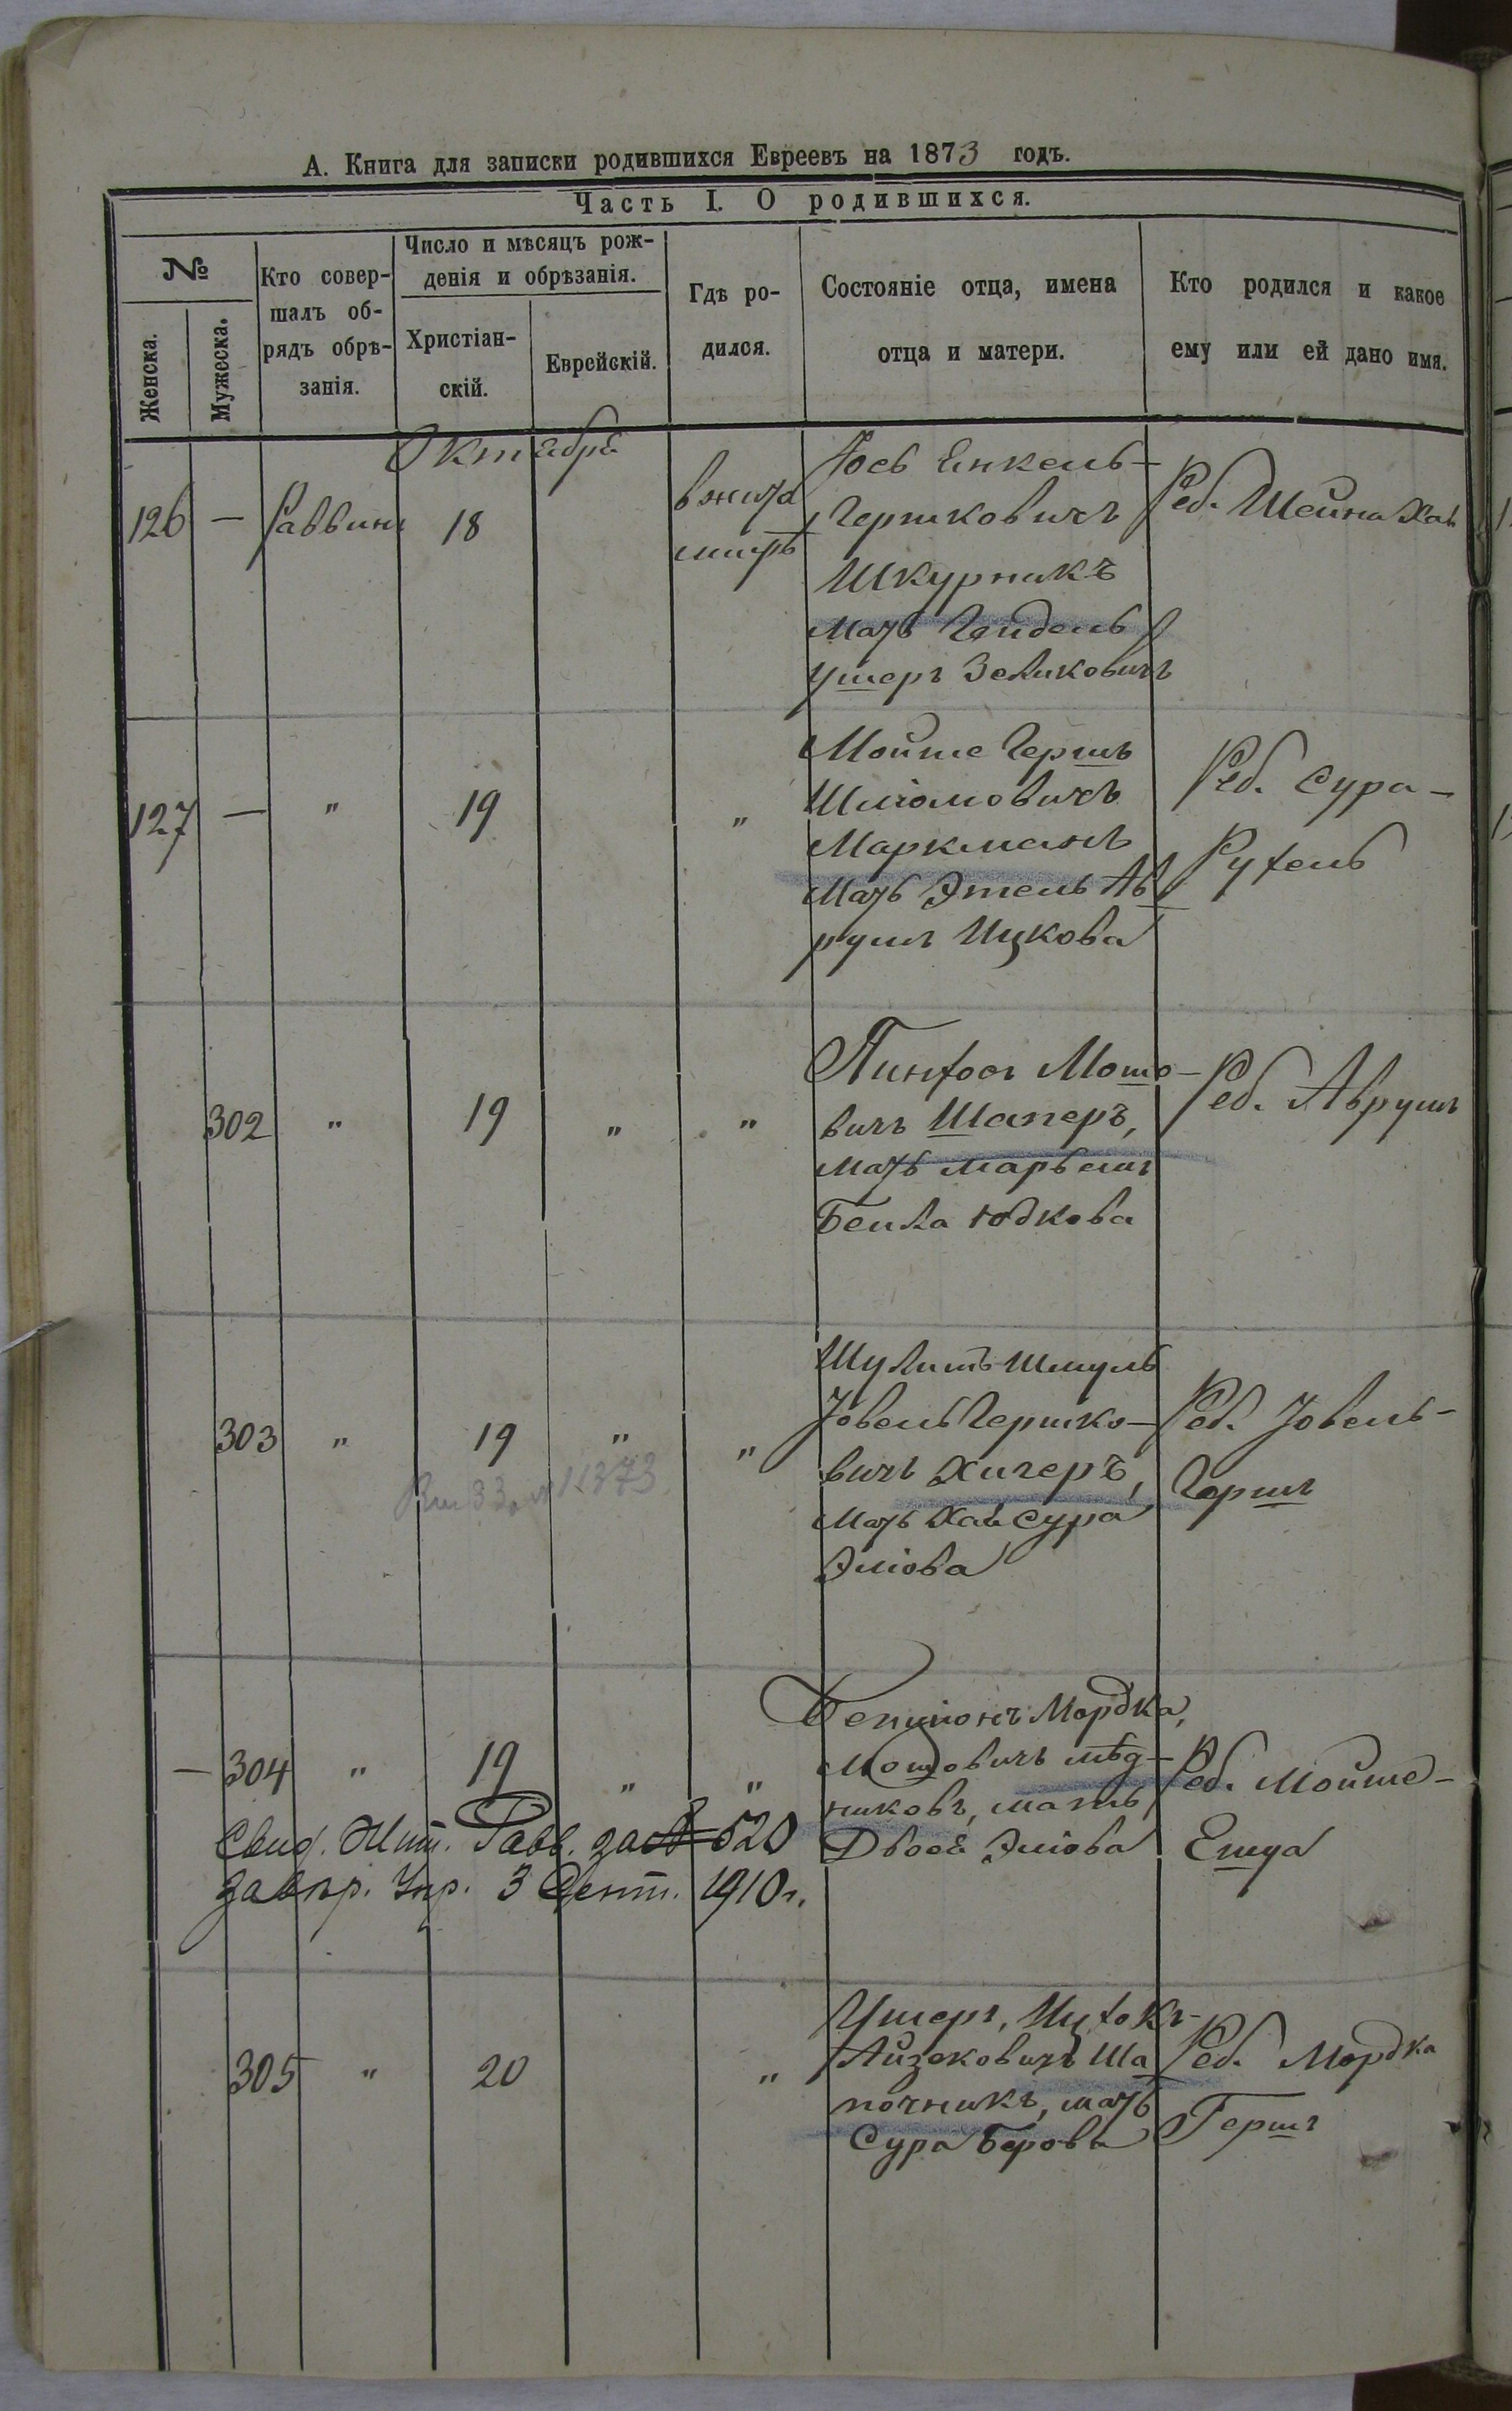 А. Книга для записки родившихся Евреевъ на 1873 годъ.
Часть I. О родившихся.
№
Женска.
Мужеска.
Кто совер-
шалъ об-
рядъ обрѣ-
занія.
Число и мѣсяцъ рож-
денія и обрѣзанія.
Христіан-
скій.
Еврейскій.
Гдѣ ро-
дился.
Состояніе отца, имена
отца и матери.
Кто родился и какое
ему или ей дано имя.
Октября
126 — Раввинъ 18
в жито
мирѣ
Іось Енкель-
Гершковичъ
Шкурникъ
мать Гендель
Ушеръ Зеликовичъ
Реб. Шейна Хая
127 — " 19 "
Мойше Гершъ
Шліомовичъ
Маркманъ
мать Этель Ав
румъ Ицкова
Реб. Сура-
Рухель
302 " 19 " "
Пинхосъ Мошо-
вичъ Шаперъ,
мать Марьемъ
Бейла Юдкова
Реб. Аврумъ
303 " 19 " "
Шулимъ Шмуль
Іовель Гершко-
вичъ Хигеръ,
мать Хая Сура
Эліова
Реб. Іовель-
Гершъ
— 304 " 19 " "
Бенціонъ Мордка,
Мошовичъ Мѣд-
никовъ, мать
Двося Эліова
Реб. Мойше-
Ешуа
Свид. Жит. Равв. за № 520
3 Сент. 1910 г.
305 " 20 "
Ушеръ, Ицхокъ-
Айзековичъ Ша
почникъ, мать
Сура Берова
Реб. Мордка
Гершъ